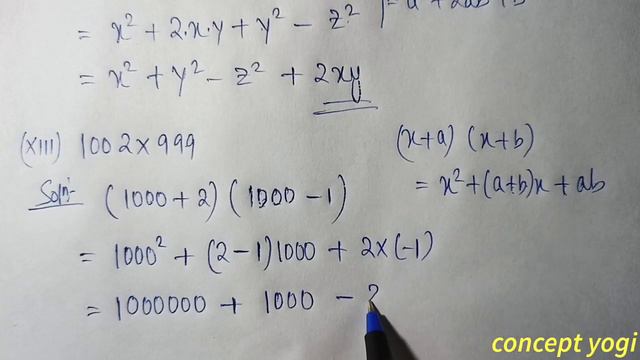 = x² + 2·x·y + y² − z²
= x² + y² − z² + 2xy
(XIII) 1002 × 999
(x+a) (x+b)
= x² + (a+b)x + ab
Soln:-
(1000 + 2) (1000 − 1)
= 1000² + (2−1)1000 + 2×(−1)
= 1000000 + 1000 − 2
concept yogi